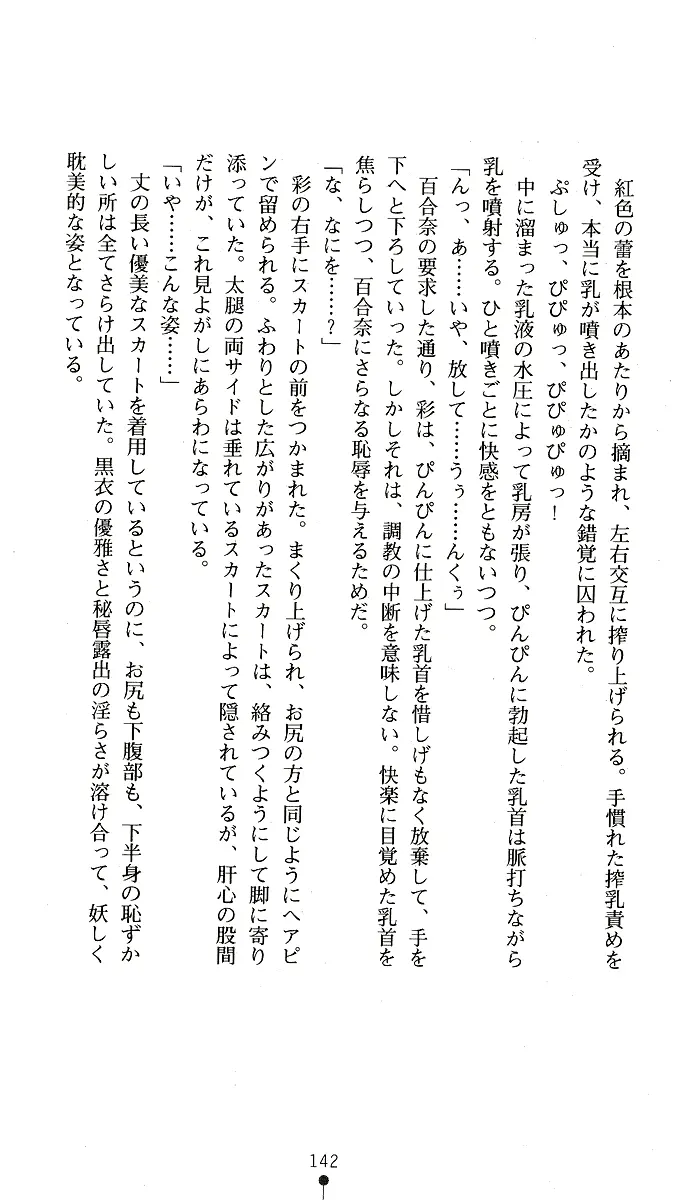 紅色の蕾を根本のあたりから摘まれ、左右交互に搾り上げられる。手慣れた搾乳責めを
受け、本当に乳が噴き出したかのような錯覚に囚われた。
ぷしゅっ、ぴぴゅっ、ぴぴゅぴゅっ！
中に溜まった乳液の水圧によって乳房が張り、ぴんぴんに勃起した乳首は脈打ちながら
乳を噴射する。ひと噴きごとに快感をともないつつ。
「んっ、あ……いや、放して……うぅ……んくぅ」
百合奈の要求した通り、彩は、ぴんぴんに仕上げた乳首を惜しげもなく放棄して、手を
下へと下ろしていった。しかしそれは、調教の中断を意味しない。快楽に目覚めた乳首を
焦らしつつ、百合奈にさらなる恥辱を与えるためだ。
「な、なにを……？」
彩の右手にスカートの前をつかまれた。まくり上げられ、お尻の方と同じようにヘアピ
ンで留められる。ふわりとした広がりがあったスカートは、絡みつくようにして脚に寄り
添っていた。太腿の両サイドは垂れているスカートによって隠されているが、肝心の股間
だけが、これ見よがしにあらわになっている。
「いや……こんな姿……」
丈の長い優美なスカートを着用しているというのに、お尻も下腹部も、下半身の恥ずか
しい所は全てさらけ出していた。黒衣の優雅さと秘唇露出の淫らさが溶け合って、妖しく
耽美的な姿となっている。
142